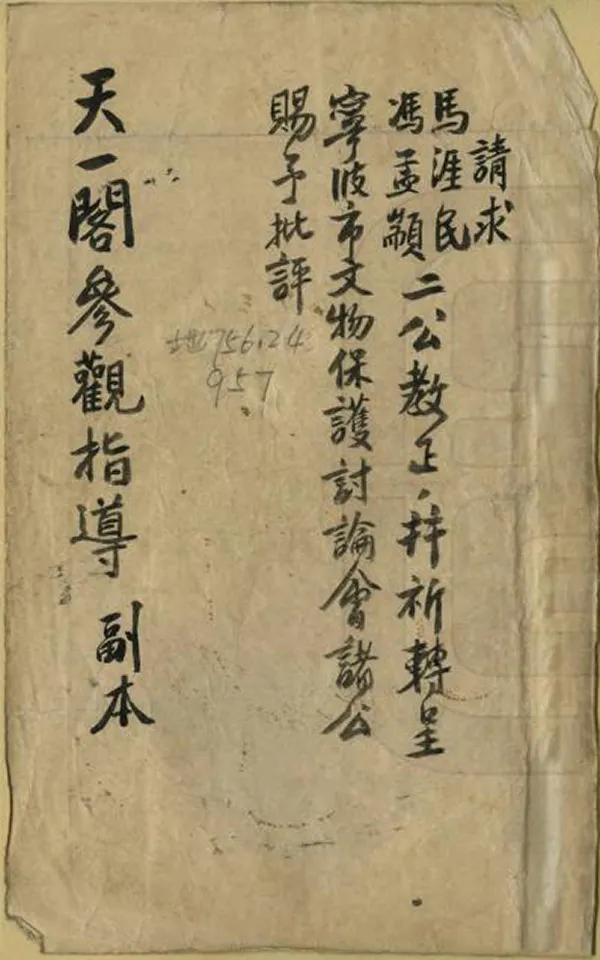 請求
馬涯民
馮孟顓
二公教正、拜祈轉呈
寧波市文物保護討論會諸公
賜予批評
地756.24
957
天一閣參觀指導 副本